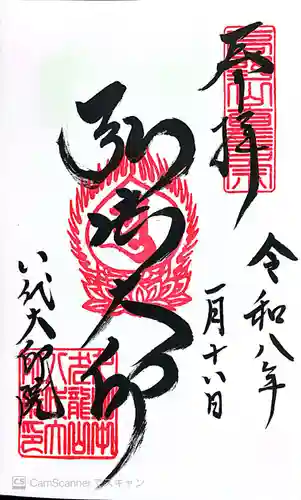 奉拝
令和八年
一月十八日
弘法大師
八代大師院
CS CamScanner でスキャン